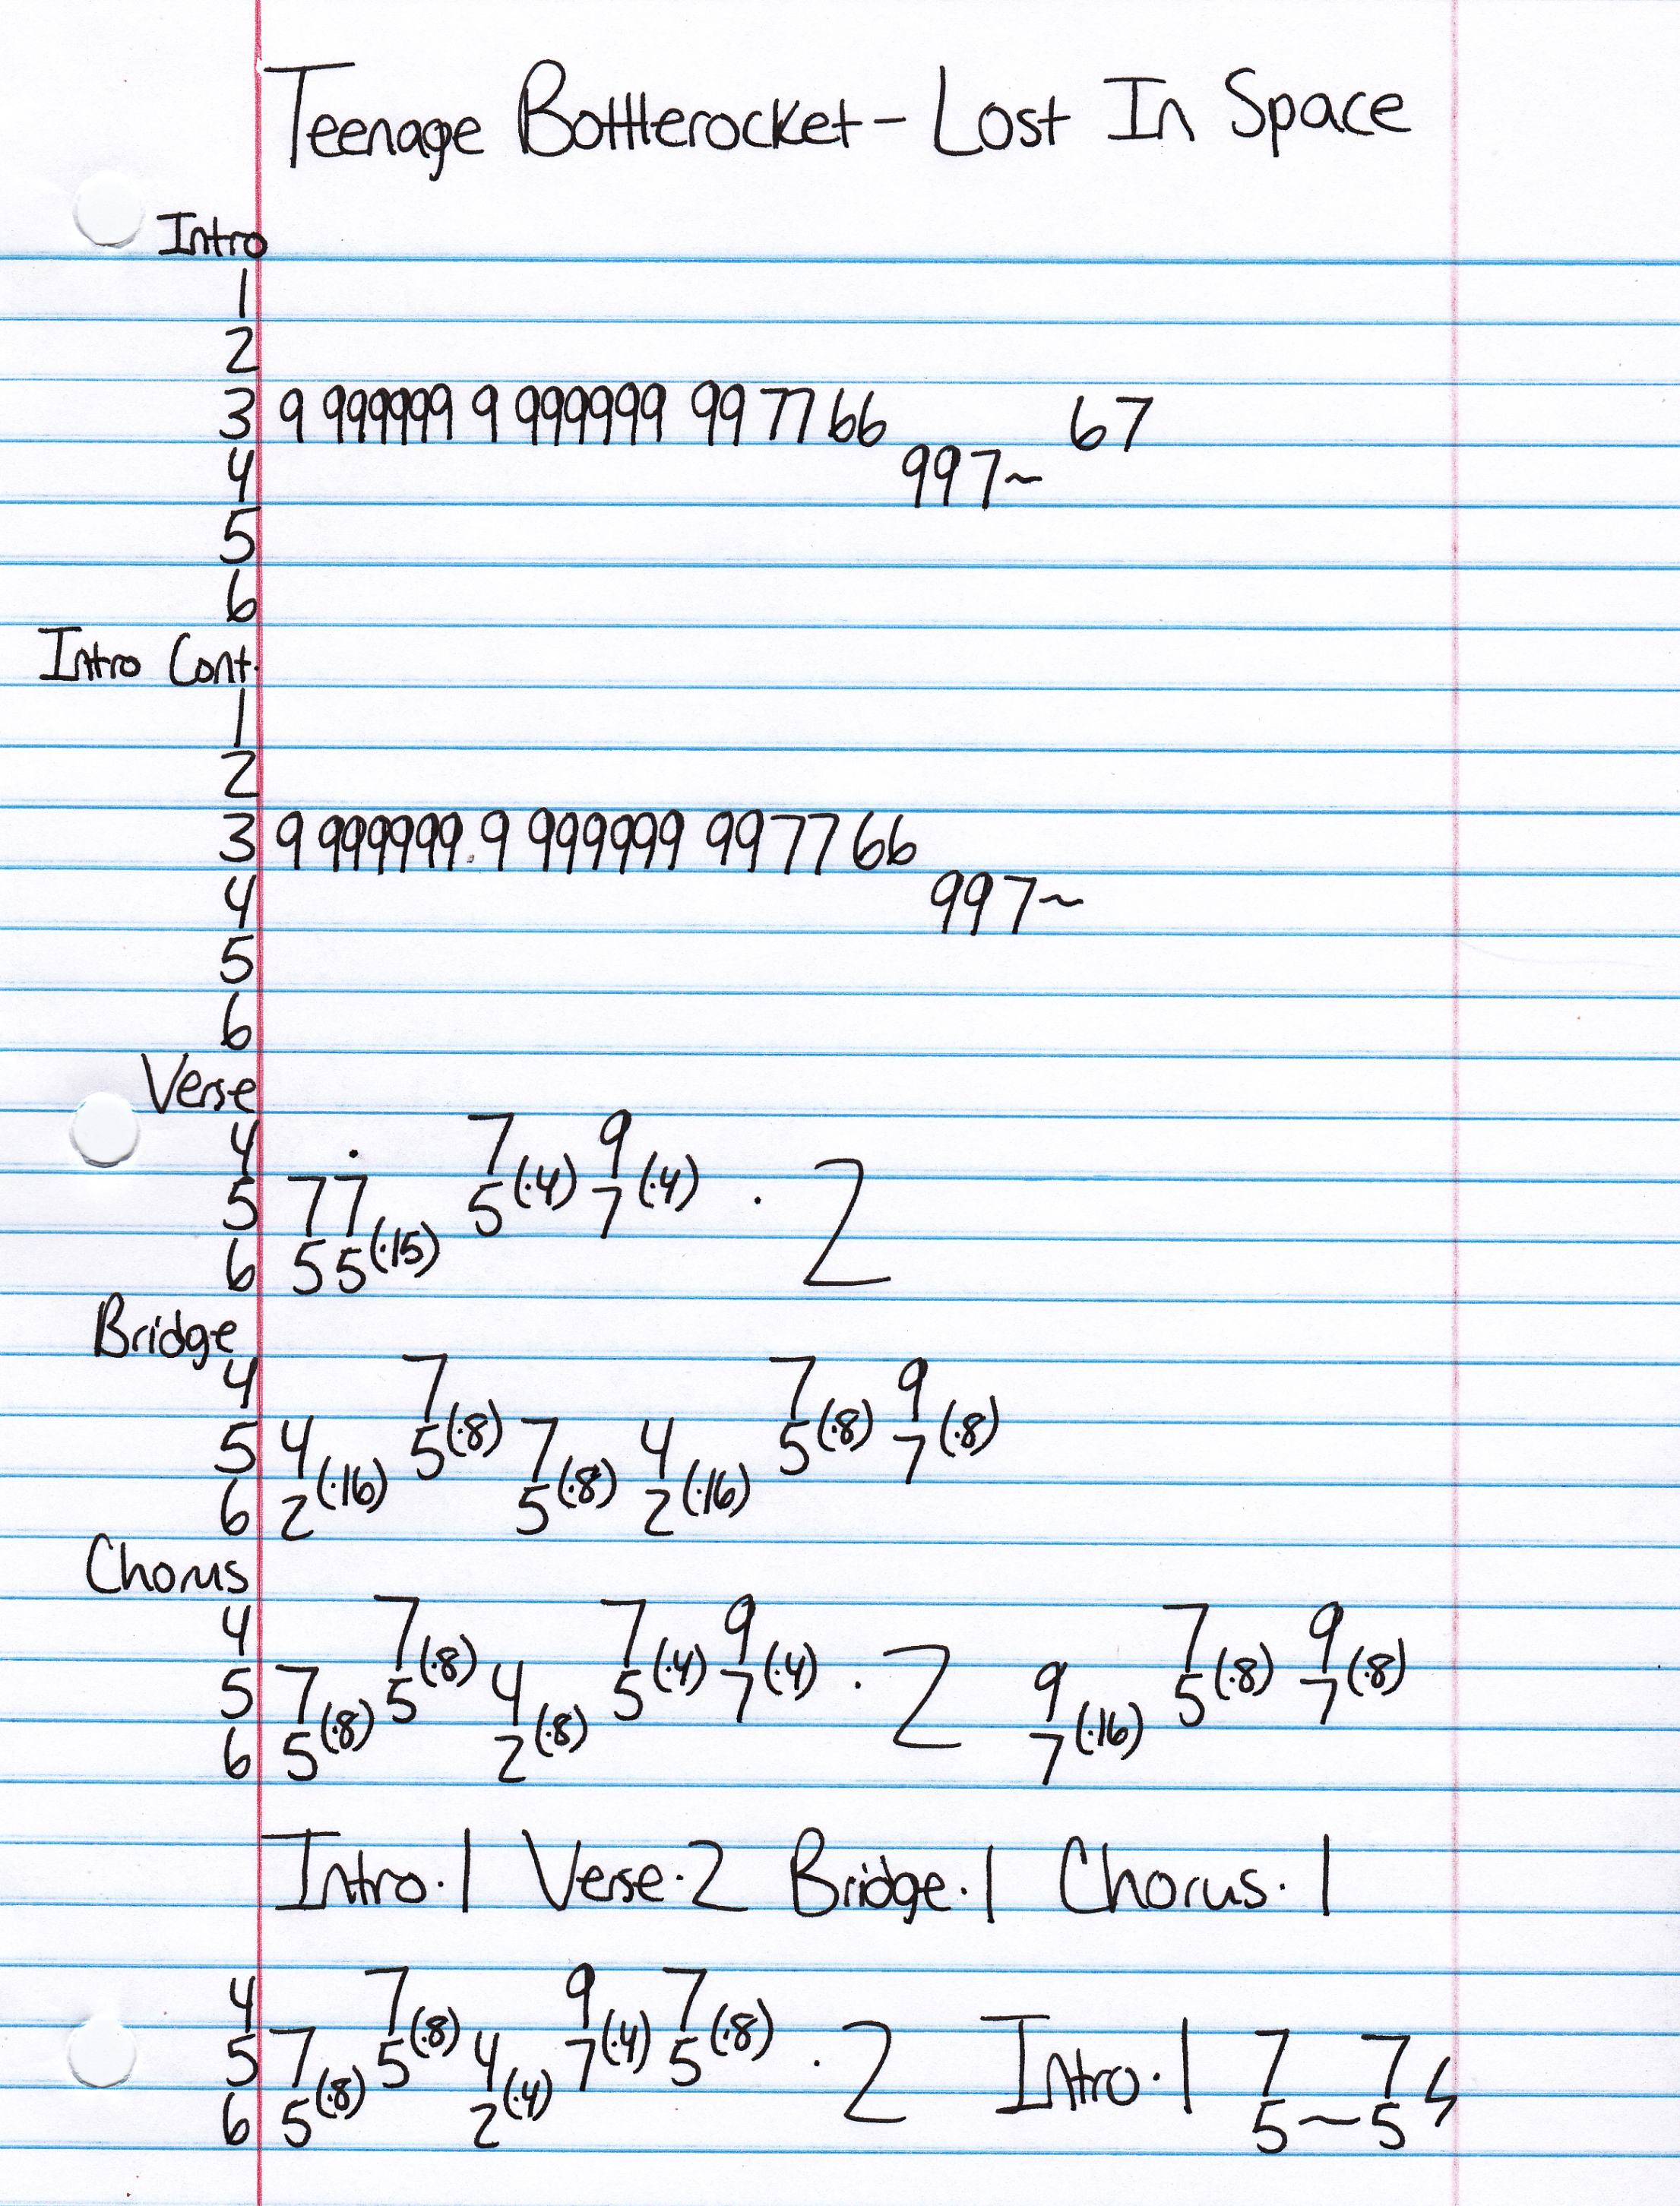 Teenage Bottlerocket - Lost In Space
Intro
1
2
3 9 999999 9 999999 99 77 66 67
4 997~
5
6
Intro Cont.
1
2
3 9 999999.9 999999 99 77 66
4 997~
5
6
Verse
4 . 7 9
5 7 7 5(·4) 7(·4) · 2
6 5 5(·15)
Bridge
4 7 7 9
5 4 5(·8) 7 4 5(·8) 7(·8)
6 2(·16) 5(·8) 2(·16)
Chorus
4 7 7 9 7 9
5 7 5(·8) 4 5(·4) 7(·4) · 2 9 5(·8) 7(·8)
6 5(·8) 2(·8) 7(·16)
Intro·1 Verse·2 Bridge·1 Chorus·1
4 7 9 7
5 7 5(·8) 4 7(·4) 5(·8) · 2 Intro·1 7 7
6 5(·8) 2(·4) 5~5